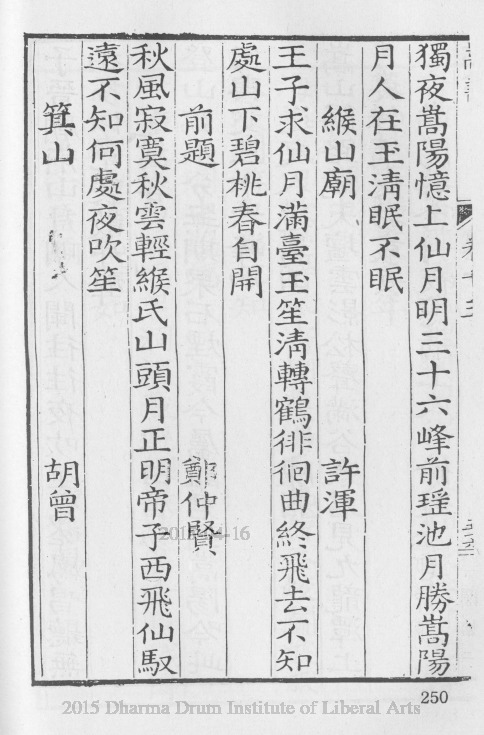 獨夜嵩陽憶上仙月明三十六峰前瑶池月勝嵩陽
月人在玉淸眠不眠
緱山廟 許渾
王子求仙月滿臺玉笙淸轉鶴徘徊曲終飛去不知
處山下碧桃春自開
前題 鄭仲賢
秋風寂寞秋雲輕緱氏山頭月正明帝子西飛仙馭
遠不知何處夜吹笙
箕山 胡曾
250
2015 Dharma Drum Institute of Liberal Arts